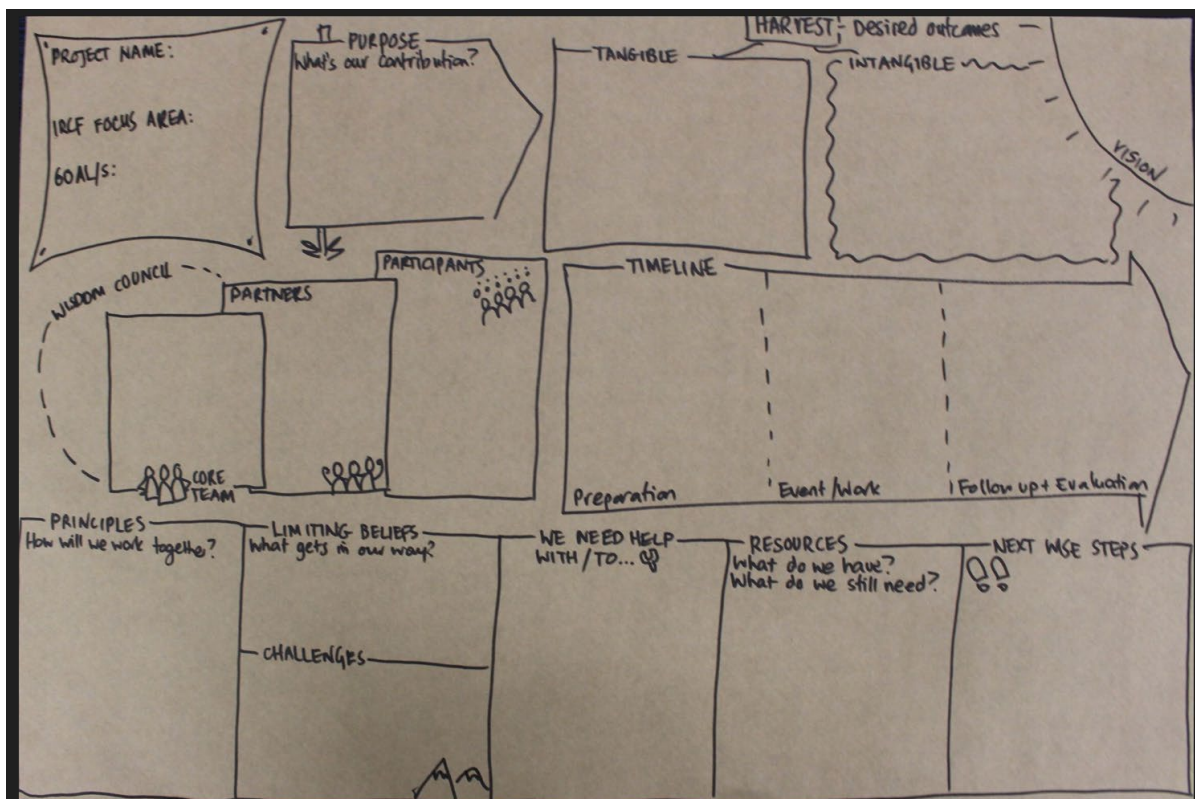 PROJECT NAME:
IRCF FOCUS AREA:
GOAL/S:
PURPOSE
What's our contribution?
HARVEST: Desired outcomes
TANGIBLE
INTANGIBLE
VISION
WISDOM COUNCIL
PARTNERS
PARTICIPANTS
CORE
TEAM
TIMELINE
Preparation
Event/Work
Follow up + Evaluation
PRINCIPLES
How will we work together?
LIMITING BELIEFS
What gets in our way?
CHALLENGES
WE NEED HELP
WITH/TO...
RESOURCES
What do we have?
What do we still need?
NEXT WISE STEPS